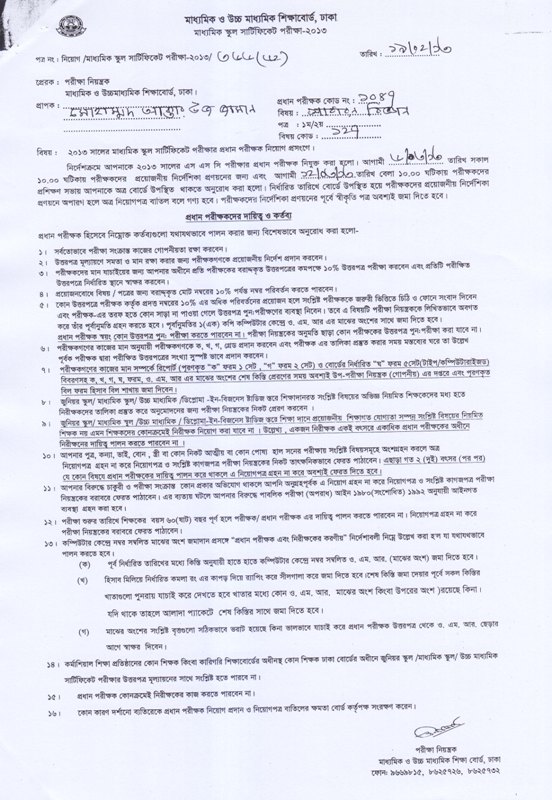 মাধ্যমিক ও উচ্চ মাধ্যমিক শিক্ষাবোর্ড, ঢাকা
মাধ্যমিক স্কুল সার্টিফিকেট পরীক্ষা-২০১৩
পত্র নং: নিয়োগ /মাধ্যমিক স্কুল সার্টিফিকেট পরীক্ষা-২০১৩/
তারিখ :
প্রেরক : পরীক্ষা নিয়ন্ত্রক
মাধ্যমিক ও উচ্চমাধ্যমিক শিক্ষাবোর্ড, ঢাকা।
প্রাপক :
প্রধান পরীক্ষক কোড নং :
বিষয় : সাধারন বিজ্ঞান
পত্র : ১ম/২য়
বিষয় কোড : ১২৭
বিষয় : ২০১৩ সালের মাধ্যমিক স্কুল সার্টিফিকেট পরীক্ষার প্রধান পরীক্ষক নিয়োগ প্রসংগে।
নির্দেশক্রমে আপনাকে ২০১৩ সালের এস এস সি পরীক্ষার প্রধান পরীক্ষক নিযুক্ত করা হলো। আগামী তারিখ সকাল
১০.০০ ঘটিকায় পরীক্ষকদের প্রয়োজনীয় নির্দেশিকা প্রণয়নের জন্য এবং আগামী তারিখ বেলা ১০.০০ ঘটিকায় পরীক্ষকদের
প্রশিক্ষন সভায় আপনাকে অত্র বোর্ডে উপস্থিত থাকতে অনুরোধ করা হলো। নির্ধারিত তারিখে বোর্ডে উপস্থিত হয়ে পরীক্ষকদের প্রয়োজনীয় নির্দেশিকা
প্রণয়নে অপারগ হলে অত্র নিয়োগপত্র বাতিল বলে গণ্য হবে। পরীক্ষকদের নির্দেশিকা প্রণয়নের পূর্বে স্বীকৃতি পত্র অবশ্যই জমা দিতে হবে।
প্রধান পরীক্ষকদের দায়িত্ব ও কর্তব্য
প্রধান পরীক্ষক হিসেবে নিম্নোক্ত কর্তব্যগুলো যথাযথভাবে পালন করার জন্য বিশেষভাবে অনুরোধ করা হলো-
১। সর্বতোভাবে পরীক্ষা সংক্রান্ত কাজের গোপনীয়তা রক্ষা করবেন।
২। উত্তরপত্র মূল্যায়ণে সমতা ও মান রক্ষা করার জন্য পরীক্ষকগণকে প্রয়োজনীয় নির্দেশ প্রদান করবেন।
৩। পরীক্ষকদের মান যাচাইয়ের জন্য আপনার অধীনে প্রতি পরীক্ষকের বরাদ্দকৃত উত্তরপত্রের কমপক্ষে ১০% উত্তরপত্র পরীক্ষা করবেন এবং প্রতিটি পরীক্ষিত
উত্তরপত্রে নির্ধারিত স্থানে স্বাক্ষর করবেন।
৪। প্রয়োজনবোধে বিষয় / পত্রের জন্য বরাদ্দকৃত মোট নম্বরের ১০% পর্যন্ত নম্বর পরিবর্তন করতে পারবেন।
৫। কোন উত্তরপত্রে পরীক্ষক কর্তৃক প্রদত্ত নম্বরের ১০% এর অধিক পরিবর্তনের প্রয়োজন হলে সংশ্লিষ্ট পরীক্ষককে জরুরী ভিত্তিতে চিঠি ও ফোনে সংবাদ দিবেন
এবং পরীক্ষক-এর তরফ হতে কোন সাড়া না পাওয়া গেলে উত্তরপত্র পুন:পরীক্ষণের ব্যবস্থা নিবেন। তবে এ বিষয়টি পরীক্ষা নিয়ন্ত্রককে লিখিতভাবে অবগত
করে তাঁর পূর্বানুমতি গ্রহন করতে হবে। পূর্বানুমতির ১(এক) কপি কম্পিউটার কেন্দ্রে ও. এম. আর এর মাঝের অংশের সাথে জমা দিতে হবে।
প্রধান পরীক্ষক স্বয়ং কোন উত্তরপত্র পুন: পরীক্ষা করতে পারবেন না। পরীক্ষা নিয়ন্ত্রকের অনুমতি ছাড়া কোন পরীক্ষকের উত্তরপত্র পুন:পরীক্ষা করা যাবে না।
৬। পরীক্ষকগণের কাজের মান অনুযায়ী পরীক্ষকগণকে ক, খ, গ, গ্রেড প্রদান করবেন এবং পরীক্ষক এর তালিকা প্রস্তুত করার সময় মন্তব্যের ঘরে তা উল্লেখ
পূর্বক পরীক্ষক দ্বারা পরীক্ষিত উত্তরপত্রের সংখ্যা সুস্পষ্ট ভাবে প্রদান করবেন।
৭। পরীক্ষকগণের কাজের মান সম্পর্কে রিপোর্ট (পূরণকৃত "ক" ফরম ১ সেট , "গ" ফরম ২ সেট) ও বোর্ডের নির্ধারিত "ঘ" ফরম ৫সেট(টাইপ/কম্পিউটারাইজড)
বিবরণসহ ক, খ, গ, ঘ, ফরম, ও. এম. আর এর মাঝের অংশের সাথে শেষ কিস্তি প্রেরণের সময় অবশ্যই উপ-পরীক্ষা নিয়ন্ত্রক (গোপনীয়) এর দপ্তরে এবং পূরণকৃত
বিল ফরম হিসাব বিল শাখায় জমা দিবেন।
৮। জুনিয়র স্কুল/ মাধ্যমিক স্কুল/ উচ্চমাধ্যমিক /ডিপ্লোমা -ইন-বিজনেস স্টাডিজ স্তরে শিক্ষাদানরত সংশ্লিষ্ট বিষয়ের অভিজ্ঞ নিয়মিত শিক্ষকদের মধ্য হতে
নিরীক্ষকদের তালিকা প্রস্তুত করে অনুমোদনের জন্য পরীক্ষা নিয়ন্ত্রকের নিকট প্রেরণ করবেন।
৯। জুনিয়র স্কুল/ মাধ্যমিক স্কুল/ উচ্চ মাধ্যমিক / ডিপ্লোমা -ইন-বিজনেস স্টাডিজ স্তরে শিক্ষা দানে প্রয়োজনীয় শিক্ষাগত যোগ্যতা সম্পন্ন সংশ্লিষ্ট বিষয়ের নিয়মিত
শিক্ষক নয় এমন শিক্ষকদের কোনক্রমেই নিরীক্ষক নিয়োগ করা যাবে না। উল্লেখ্য , একজন নিরীক্ষক একই বৎসরে একাধিক প্রধান পরীক্ষকের অধীনে
নিরীক্ষনের দায়িত্ব পালন করতে পারবেন না।
১০। আপনার পুত্র, কন্যা, ভাই, বোন , স্ত্রী বা কোন নিকট আত্মীয় বা কোন পোষ্য হাল সনের পরীক্ষায় সংশ্লিষ্ট বিষয়সমূহে অংশগ্রহন করলে অত্র
নিয়োগপত্র গ্রহন না করে নিয়োগপত্র ও সংশ্লিষ্ট কাগজপত্র পরীক্ষা নিয়ন্ত্রকের নিকট তাৎক্ষনিকভাবে ফেরত পাঠাবেন। এছাড়া গত ২ (দুই) বৎসর (পর পর)
যে কোন বিষয়ে প্রধান পরীক্ষকের দায়িত্ব পালন করে থাকলে এ নিয়োগপত্র গ্রহণ না করে অবশ্যই ফেরত দিতে হবে।
১১। আপনার বিরুদ্ধে চাকুরী ও পরীক্ষা সংক্রান্ত কোন প্রকার অভিযোগ থাকলে আপনি অনুগ্রহপূর্বক এ নিয়োগ গ্রহন না করে নিয়োগপত্র ও সংশ্লিষ্ট কাগজপত্র পরীক্ষা
নিয়ন্ত্রকের বরাবরে ফেরত পাঠাবেন। এর ব্যত্যয় ঘটলে আপনার বিরুদ্ধে পাবলিক পরীক্ষা (অপরাধ) আইন ১৯৮০(সংশোধিত) ১৯৯২ অনুযায়ী আইনগত
ব্যবস্থা গ্রহন করা হবে।
১২। পরীক্ষা শুরুর তারিখে শিক্ষকের বয়স ৬০(ষাট) বছর পূর্ণ হলে পরীক্ষক/ প্রধান পরীক্ষক এর দায়িত্ব পালন করতে পারবেন না। নিয়োগপত্র গ্রহন না করে
পরীক্ষা নিয়ন্ত্রকের বরাবরে ফেরত পাঠাবেন।
১৩। কম্পিউটার কেন্দ্রে নম্বর সম্বলিত মাঝের অংশ জমাদান প্রসঙ্গে "প্রধান পরীক্ষক এবং নিরীক্ষকের করণীয়" নির্দেশাবলী নিম্নে উল্লেখ করা হল যা যথাযথভাবে
পালন করতে হবে।
(ক) পূর্ব নির্ধারিত তারিখের মধ্যে কিস্তি অনুযায়ী হাতে হাতে কম্পিউটার কেন্দ্রে নম্বর সম্বলিত ও. এম. আর. (মাঝের অংশ) জমা দিতে হবে।
(খ) হিসাব মিলিয়ে নির্ধারিত কমলা রং এর কাপড় দিয়ে র‍্যাপিং করে সীলগালা করে জমা দিতে হবে।শেষ কিস্তি জমা দেয়ার পূর্বে সকল কিস্তির
খাতাগুলো পুনরায় যাচাই করে দেখতে হবে খাতার মধ্যে কোন ও. এম. আর. মাঝের অংশ কিংবা উপরের অংশ )রয়েছে কিনা।
যদি থাকে তাহলে আলাদা প্যাকেটে শেষ কিস্তির সাথে জমা দিতে হবে।
(গ) মাঝের অংশের সংশ্লিষ্ট বৃত্তগুলো সঠিকভাবে ভরাট হয়েছে কিনা ভালভাবে যাচাই করে প্রধান পরীক্ষক উত্তরপত্র থেকে ও. এম. আর. ছেড়ার
আগে স্বাক্ষর দিবেন।
১৪। কর্মাশিয়াল শিক্ষা প্রতিষ্ঠানের কোন শিক্ষক কিংবা কারিগরি শিক্ষাবোর্ডের অধীনস্থ কোন শিক্ষক ঢাকা বোর্ডের অধীনে জুনিয়র স্কুল /মাধ্যমিক স্কুল/ উচ্চ মাধ্যমিক
সার্টিফিকেট পরীক্ষার উত্তরপত্র মূল্যায়নের সাথে সংশ্লিষ্ট হতে পারবে না।
১৫। প্রধান পরীক্ষক কোনক্রমেই নিরীক্ষকের কাজ করতে পারবেন না।
১৬। কোন কারণ দর্শানো ব্যতিরেকে প্রধান পরীক্ষক নিয়োগ প্রদান ও নিয়োগপত্র বাতিলের ক্ষমতা বোর্ড কর্তৃপক্ষ সংরক্ষণ করেন।
পরীক্ষা নিয়ন্ত্রক
মাধ্যমিক ও উচ্চ মাধ্যমিক শিক্ষা বোর্ড, ঢাকা
ফোন: ৯৬৬৯৮১৫, ৮৬২৫৭২৬, ৮৬২৫৭৩২